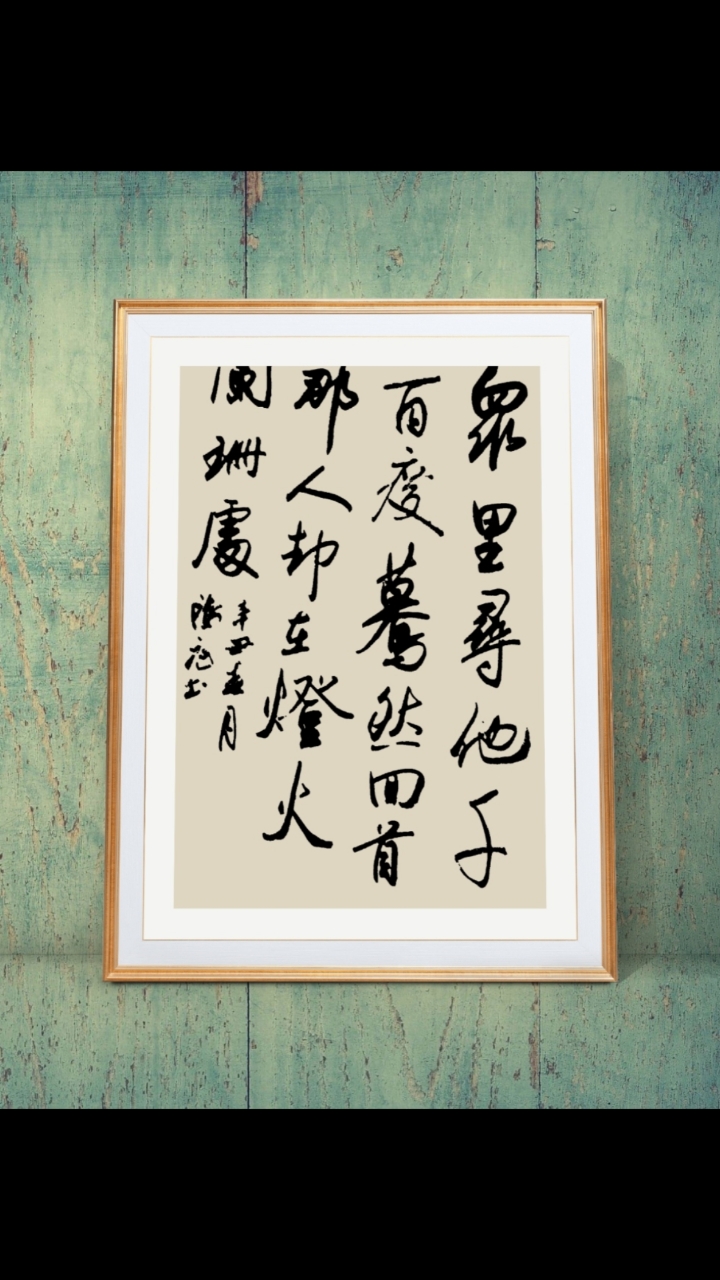 眾里尋他千
百度驀然回首
那人却在燈火
闌珊處
辛丑春月